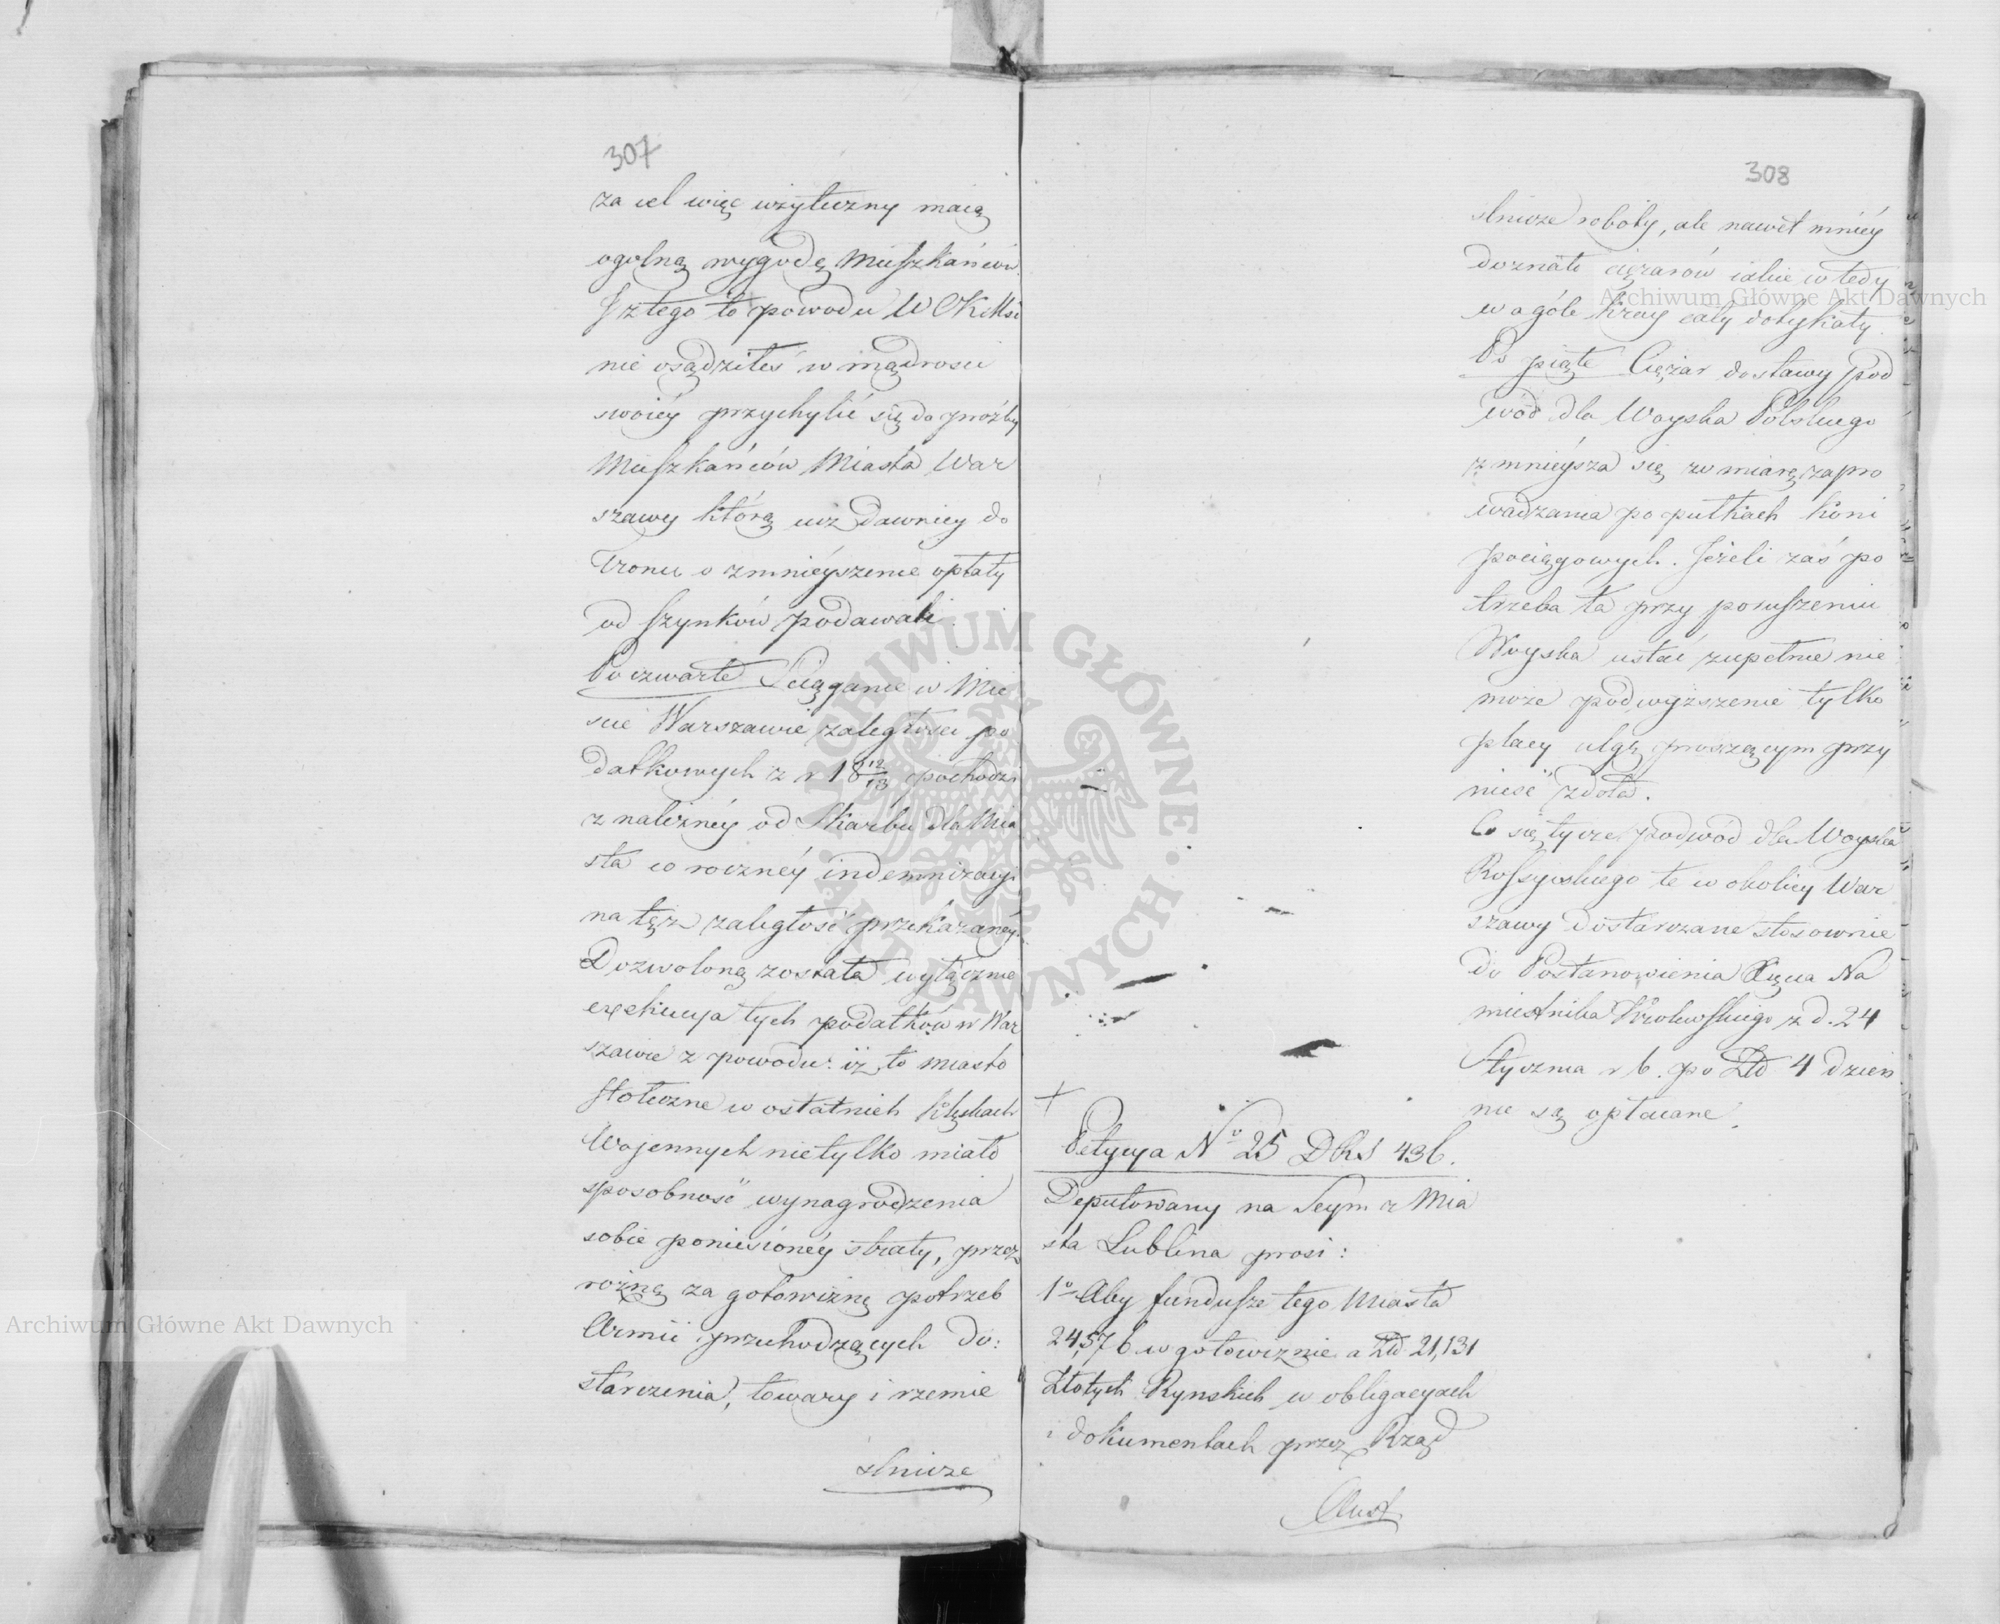 307
za cel więc użyteczny maią
ogolną wygodę Mieszkańców
I z tego to powodu W CK Mść
nie osądziłeś w mądrości
swoiéy przychylić się do proźby
Mieszkańców Miasta War
szawy którą iuż dawniey do
Tronu o zmnieyszenie opłaty
od szynków podawali.
Po czwarte Sciąganie w Mie
scie Warszawie zaległości po
datkowych z r 18 12/13 pochodzi
z należnéy od Skarbu dla Mia
sta co roczney indemnizacyi
na tęż zaległość przekazanéy.
Dozwoloną została wyłącznie
exekucya tych podatków w War
szawie z powodu: iż to miasto
stołeczne w ostatnich klęskach
Wojennych nietylko miało
sposobność wynagrodzenia
sobie poniesionéy straty, przez
rożną za gotowiznę potrzeb
Armii przechodzących do:
starczenia, towary i rzemie
slnicze
308
slnicze roboty, ale nawet mniéy
doznało ciężarów iakie wtedy
w ogóle kray cały dotykały.
Po piąte Ciężar dostawy pod
wód dla Woyska Polskiego
zmnieysza się w miarę zapro
wadzania po pułkach koni
pociągowych. Jeżeli zaś po
trzeba ta przy poruszeniu
Woyska ustać zupełnie nie
może podwyższenie tylko
płacy ulgę proszącym przy
nieść zdoła.
Co się tycze podwód dla Woyska
Rossyiskiego te w okolicy War
szawy dostarczane stosownie
do Postanowienia Xięcia Na
miestnika Królewskiego z d. 24
Stycznia r b. po Złł 4 dzien
nie są opłacane.
Petycya No 25 DKS 436.
Deputowany na Seym z Mia
sta Lublina prosi:
1o Aby fundusze tego Miasta
24,576 w gotowiznie a Złł 21,131
Złotych Rynskich w obligacyach
i dokumentach przez Rząd
Aust.
Archiwum Główne Akt Dawnych
Archiwum Główne Akt Dawnych
ARCHIWUM GŁÓWNE AKT DAWNYCH